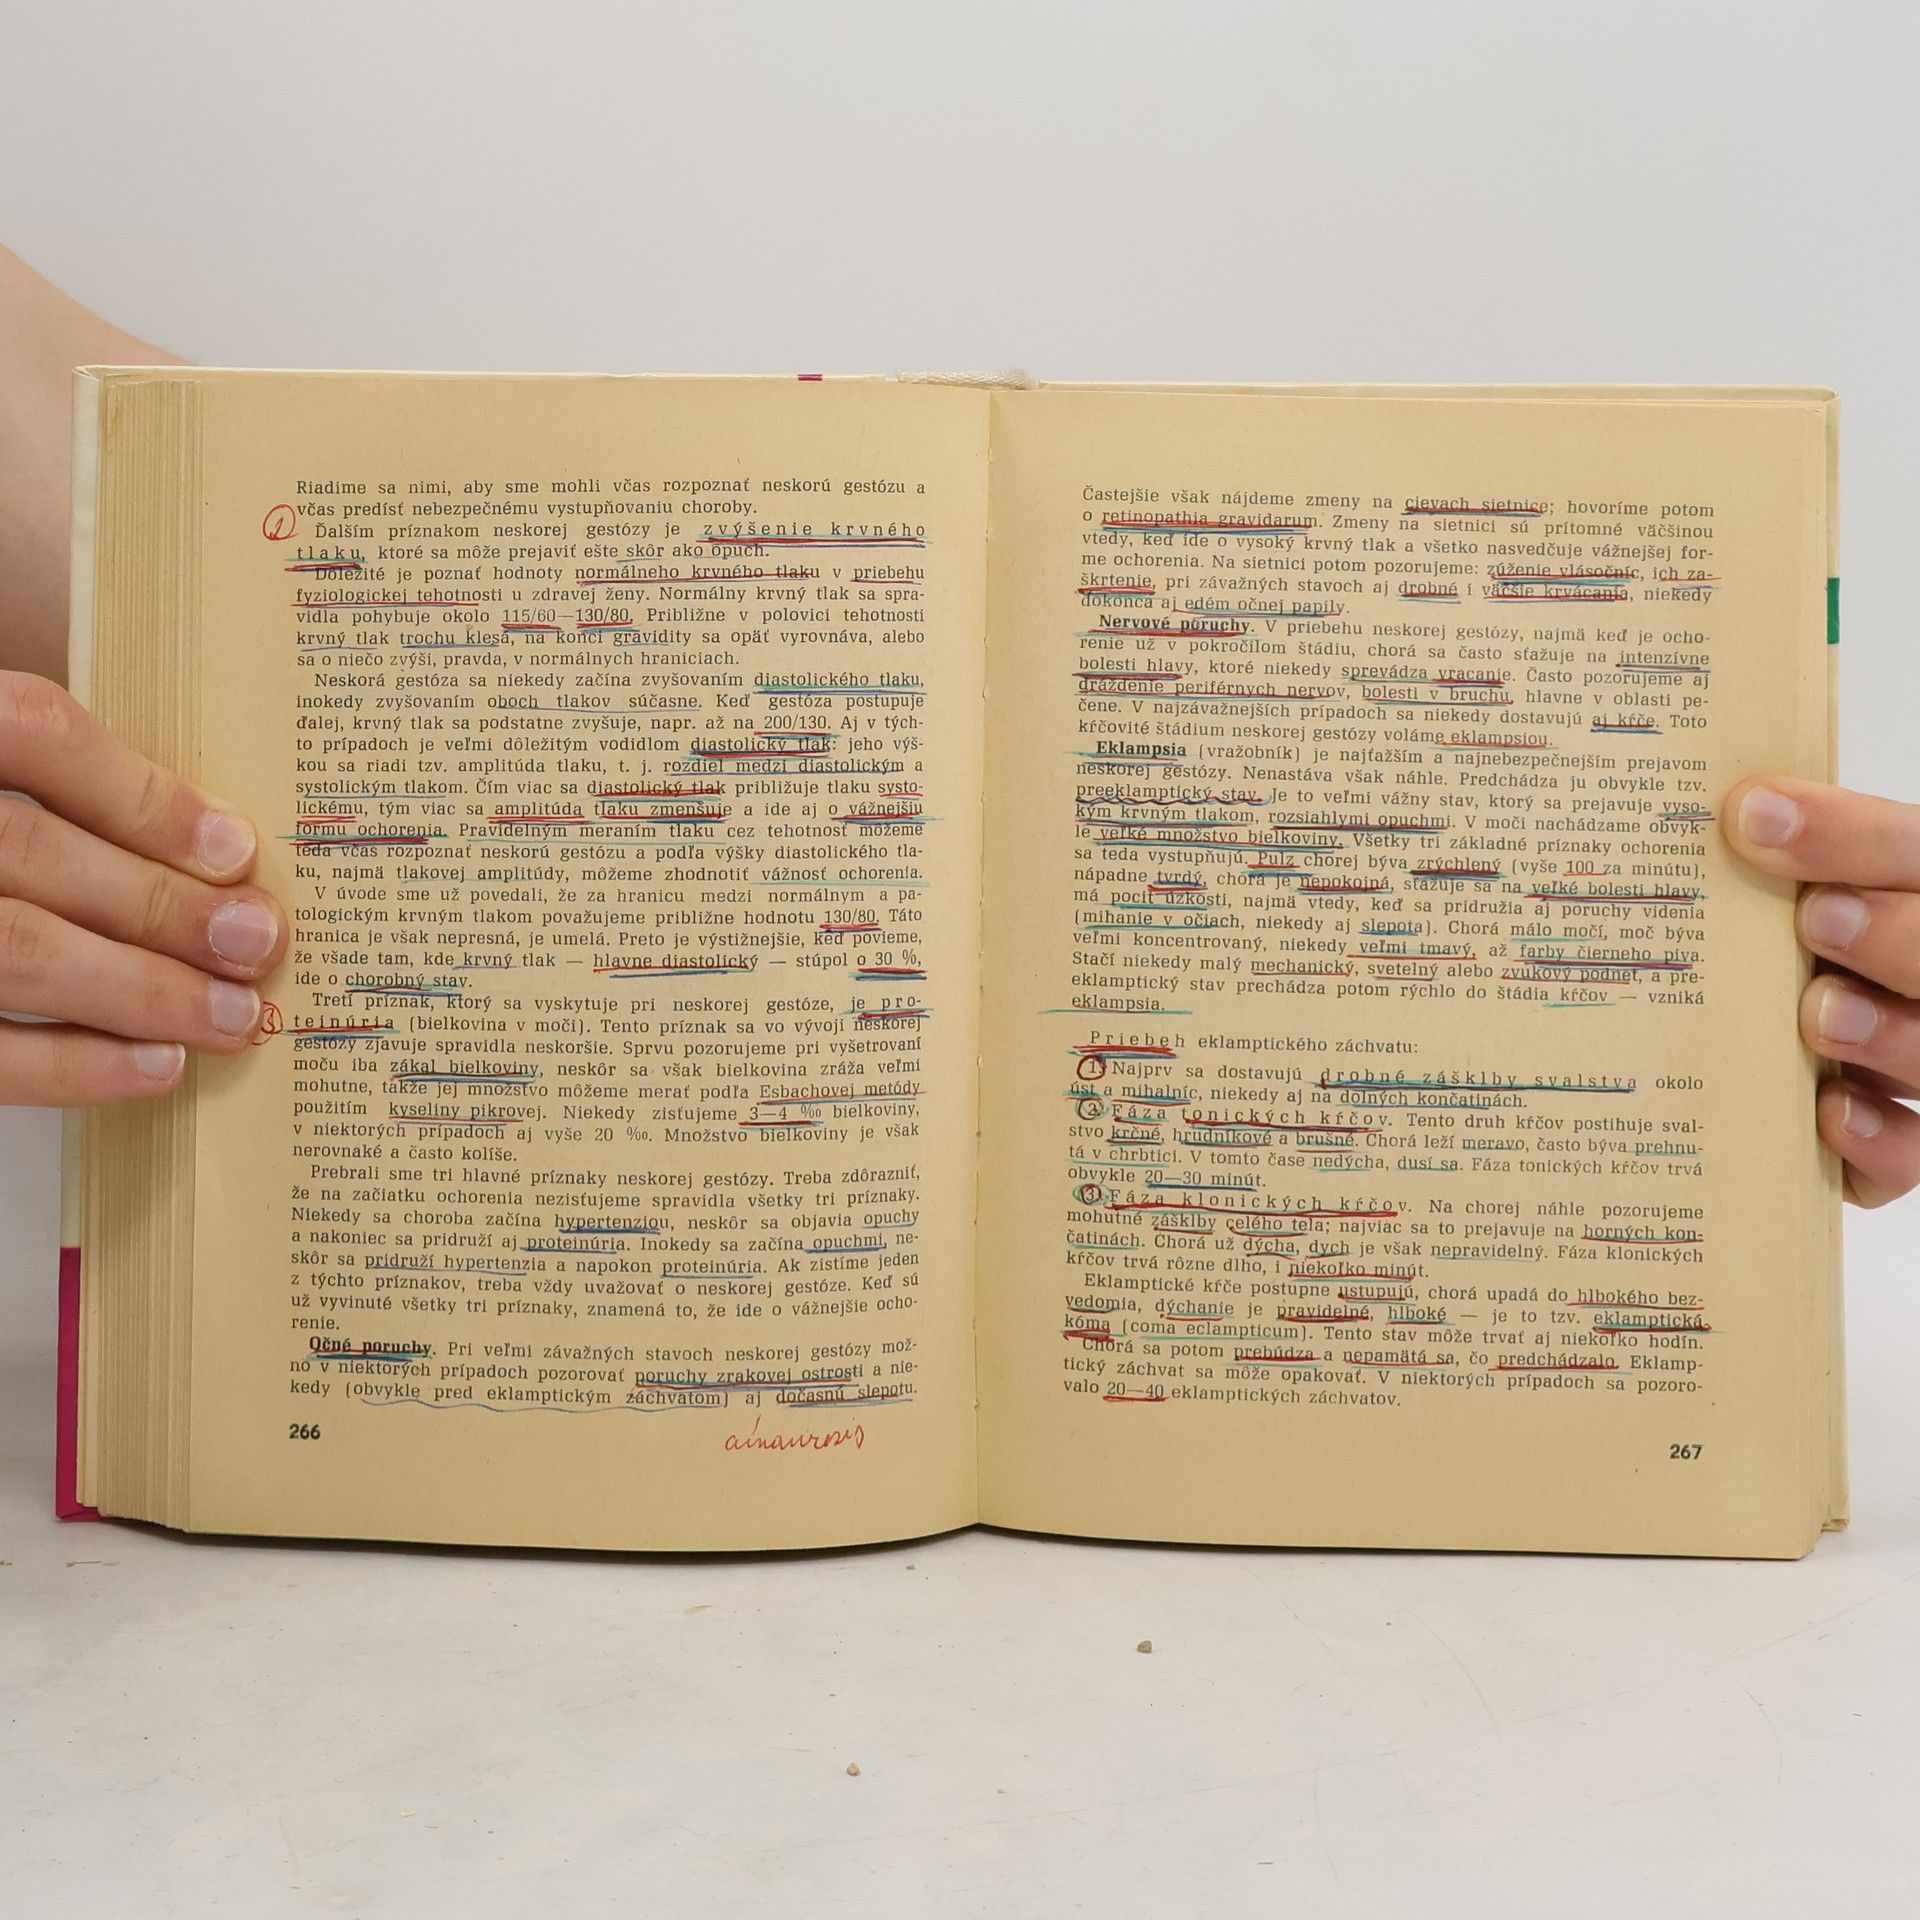 Riadime sa nimi, aby sme mohli včas rozpoznať neskorú gestózu a
včas predísť nebezpečnému vystupňovaniu choroby.
2
Ďalším príznakom neskorej gestózy je zvýšenie krvného
tlaku, ktoré sa môže prejaviť ešte skôr ako opuch.
Dôležité je poznať hodnoty normálneho krvného tlaku v priebehu
fyziologickej tehotnosti u zdravej ženy. Normálny krvný tlak sa spra-
vidla pohybuje okolo 115/60—130/80. Približne v polovici tehotnosti
krvný tlak trochu klesá, na konci gravidity sa opäť vyrovnáva, alebo
sa o niečo zvýši, pravda, v normálnych hraniciach.
Neskorá gestóza sa niekedy začína zvyšovaním diastolického tlaku,
inokedy zvyšovaním oboch tlakov súčasne. Keď gestóza postupuje
ďalej, krvný tlak sa podstatne zvyšuje, napr. až na 200/130. Aj v tých-
to prípadoch je veľmi dôležitým vodidlom diastolický tlak: jeho výš-
kou sa riadi tzv. amplitúda tlaku, t. j. rozdiel medzi diastolickým a
systolickým tlakom. Čím viac sa diastolický tlak približuje tlaku systo-
lickému, tým viac sa amplitúda tlaku zmenšuje a ide aj o vážnejšiu
formu ochorenia. Pravidelným meraním tlaku cez tehotnosť môžeme
teda včas rozpoznať neskorú gestózu a podľa výšky diastolického tla-
ku, najmä tlakovej amplitúdy, môžeme zhodnotiť vážnosť ochorenia.
V úvode sme už povedali, že za hranicu medzi normálnym a pa-
tologickým krvným tlakom považujeme približne hodnotu 130/80. Táto
hranica je však nepresná, je umelá. Preto je výstižnejšie, keď povieme,
že všade tam, kde krvný tlak — hlavne diastolický — stúpol o 30 %,
ide o chorobný stav.
Tretí príznak, ktorý sa vyskytuje pri neskorej gestóze, je pro-
3
teinúria (bielkovina v moči). Tento príznak sa vo vývoji neskorej
gestózy zjavuje spravidla neskoršie. Sprvu pozorujeme pri vyšetrovaní
moču iba zákal bielkoviny, neskôr sa však bielkovina zráža veľmi
mohutne, takže jej množstvo môžeme merať podľa Esbachovej metódy
použitím kyseliny pikrovej. Niekedy zisťujeme 3—4 ‰ bielkoviny,
v niektorých prípadoch aj vyše 20 ‰. Množstvo bielkoviny je však
nerovnaké a často kolíše.
Prebrali sme tri hlavné príznaky neskorej gestózy. Treba zdôrazniť,
že na začiatku ochorenia nezisťujeme spravidla všetky tri príznaky.
Niekedy sa choroba začína hypertenziou, neskôr sa objavia opuchy
a nakoniec sa pridruží aj proteinúria. Inokedy sa začína opuchmi, ne-
skôr sa pridruží hypertenzia a napokon proteinúria. Ak zistíme jeden
z týchto príznakov, treba vždy uvažovať o neskorej gestóze. Keď sú
už vyvinuté všetky tri príznaky, znamená to, že ide o vážnejšie ocho-
renie.
Očné poruchy. Pri veľmi závažných stavoch neskorej gestózy mož-
no v niektorých prípadoch pozorovať poruchy zrakovej ostrosti a nie-
kedy (obvykle pred eklamptickým záchvatom) aj dočasnú slepotu.
266
Častejšie však nájdeme zmeny na cievach sietnice; hovoríme potom
o retinopathia gravidarum. Zmeny na sietnici sú prítomné väčšinou
vtedy, keď ide o vysoký krvný tlak a všetko nasvedčuje vážnejšej for-
me ochorenia. Na sietnici potom pozorujeme: zúženie vlásočníc, ich za-
škrtenie, pri závažných stavoch aj drobné i väčšie krvácania, niekedy
dokonca aj edém očnej papily.
Nervové poruchy. V priebehu neskorej gestózy, najmä keď je ocho-
renie už v pokročilom štádiu, chorá sa často sťažuje na intenzívne
bolesti hlavy, ktoré niekedy sprevádza vracanie. Často pozorujeme aj
dráždenie periférnych nervov, bolesti v bruchu, hlavne v oblasti pe-
čene. V najzávažnejších prípadoch sa niekedy dostavujú aj kŕče. Toto
kŕčovité štádium neskorej gestózy voláme eklampsiou.
Eklampsia (vražobník) je najťažším a najnebezpečnejším prejavom
neskorej gestózy. Nenastáva však náhle. Predchádza ju obvykle tzv.
preeklamptický stav. Je to veľmi vážny stav, ktorý sa prejavuje vyso-
kým krvným tlakom, rozsiahlymi opuchmi. V moči nachádzame obvyk-
le veľké množstvo bielkoviny. Všetky tri základné príznaky ochorenia
sa teda vystupňujú. Pulz chorej býva zrýchlený (vyše 100 za minútu),
nápadne tvrdý, chorá je nepokojná, sťažuje sa na veľké bolesti hlavy,
má pocit úzkosti, najmä vtedy, keď sa pridružia aj poruchy videnia
(mihanie v očiach, niekedy aj slepota). Chorá málo močí, moč býva
veľmi koncentrovaný, niekedy veľmi tmavý, až farby čierneho piva.
Stačí niekedy malý mechanický, svetelný alebo zvukový podnet, a pre-
eklamptický stav prechádza potom rýchlo do štádia kŕčov — vzniká
eklampsia.
Priebeh eklamptického záchvatu:
1. Najprv sa dostavujú drobné zášklby svalstva okolo
úst a mihalníc, niekedy aj na dolných končatinách.
2. Fáza tonických kŕčov. Tento druh kŕčov postihuje sval-
stvo krčné, hrudníkové a brušné. Chorá leží meravo, často býva prehnu-
tá v chrbtici. V tomto čase nedýcha, dusí sa. Fáza tonických kŕčov trvá
obvykle 20—30 minút.
3. Fáza klonických kŕčov. Na chorej náhle pozorujeme
mohutné zášklby celého tela; najviac sa to prejavuje na horných kon-
čatinách. Chorá už dýcha, dych je však nepravidelný. Fáza klonických
kŕčov trvá rôzne dlho, i niekoľko minút.
Eklamptické kŕče postupne ustupujú, chorá upadá do hlbokého bez-
vedomia, dýchanie je pravidelné, hlboké — je to tzv. eklamptická
kóma (coma eclampticum). Tento stav môže trvať aj niekoľko hodín.
Chorá sa potom prebúdza a nepamätá sa, čo predchádzalo. Eklamp-
tický záchvat sa môže opakovať. V niektorých prípadoch sa pozoro-
valo 20—40 eklamptických záchvatov.
267